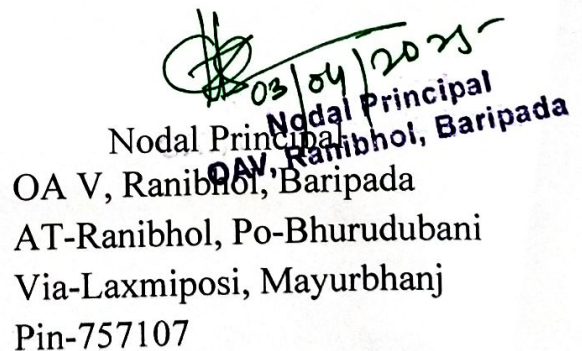 03/04/2025
Nodal Principal
OAV, Ranibhol, Baripada
Nodal Principal
OA V, Ranibhol, Baripada
AT-Ranibhol, Po-Bhurudubani
Via-Laxmiposi, Mayurbhanj
Pin-757107